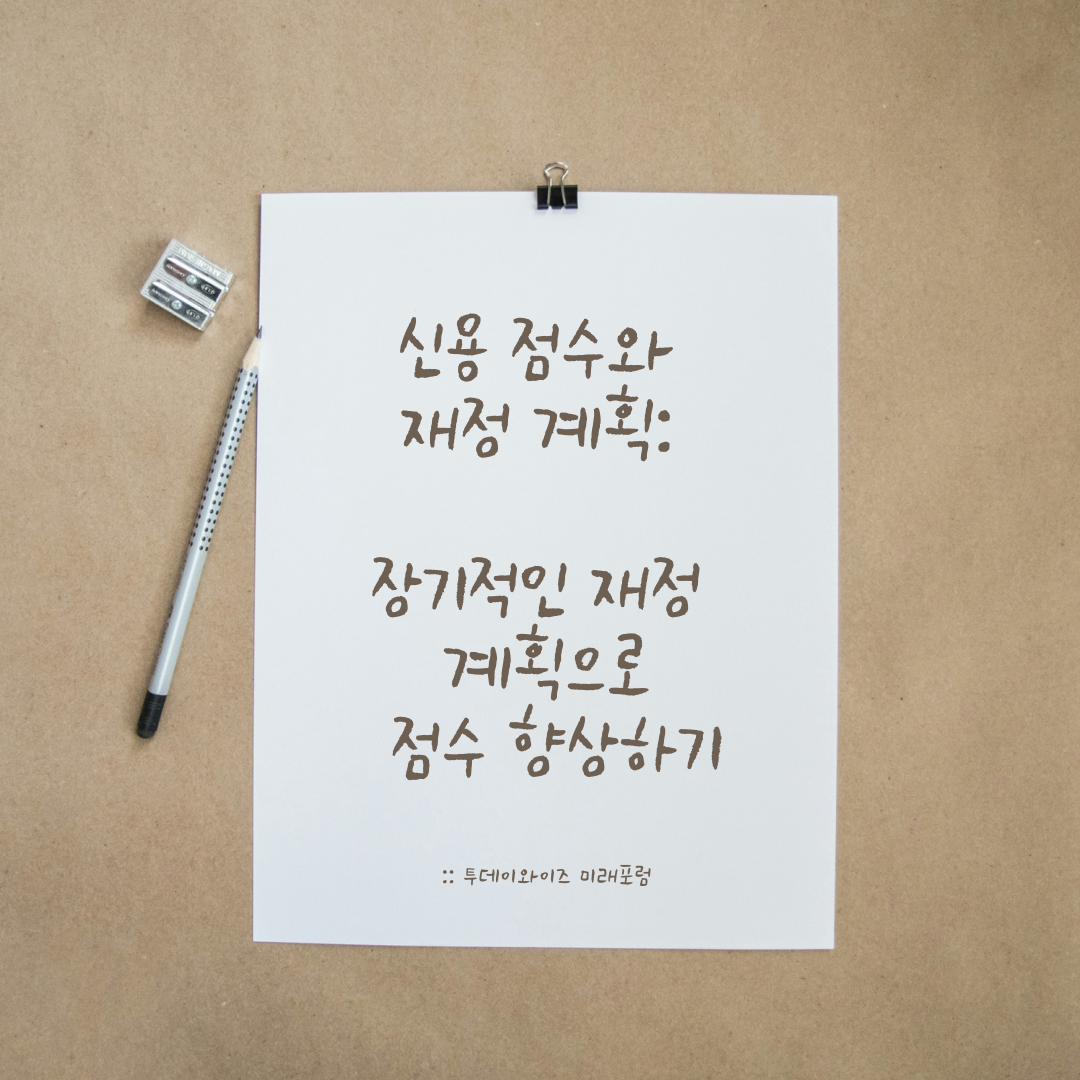 신용 점수와
재정 계획:
장기적인 재정
계획으로
점수 향상하기
:: 투데이와이즈 미래포럼